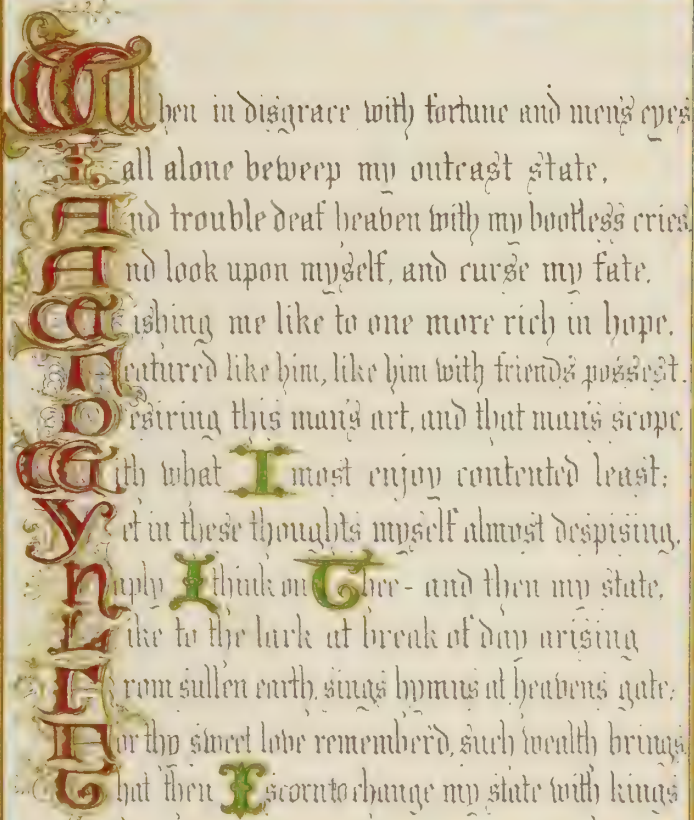 When in disgrace with fortune and men's eyes
I all alone beweep my outcast state,
And trouble deaf heaven with my bootless cries,
And look upon myself, and curse my fate.
Wishing me like to one more rich in hope,
Featured like him, like him with friends possest.
Desiring this man's art, and that man's scope,
With what I most enjoy contented least;
Yet in these thoughts myself almost despising,
Haply I think on Thee - and then my state,
Like to the lark at break of day arising
From sullen earth, sings hymns at heavens gate;
For thy sweet love remember'd, such wealth brings
That then I scorn to change my state with kings